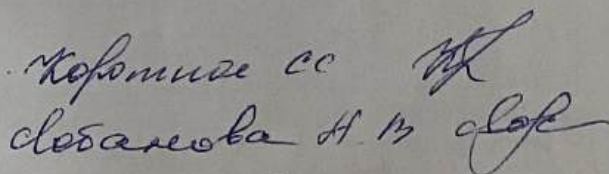 Коротков СС
Лобанова Н.В